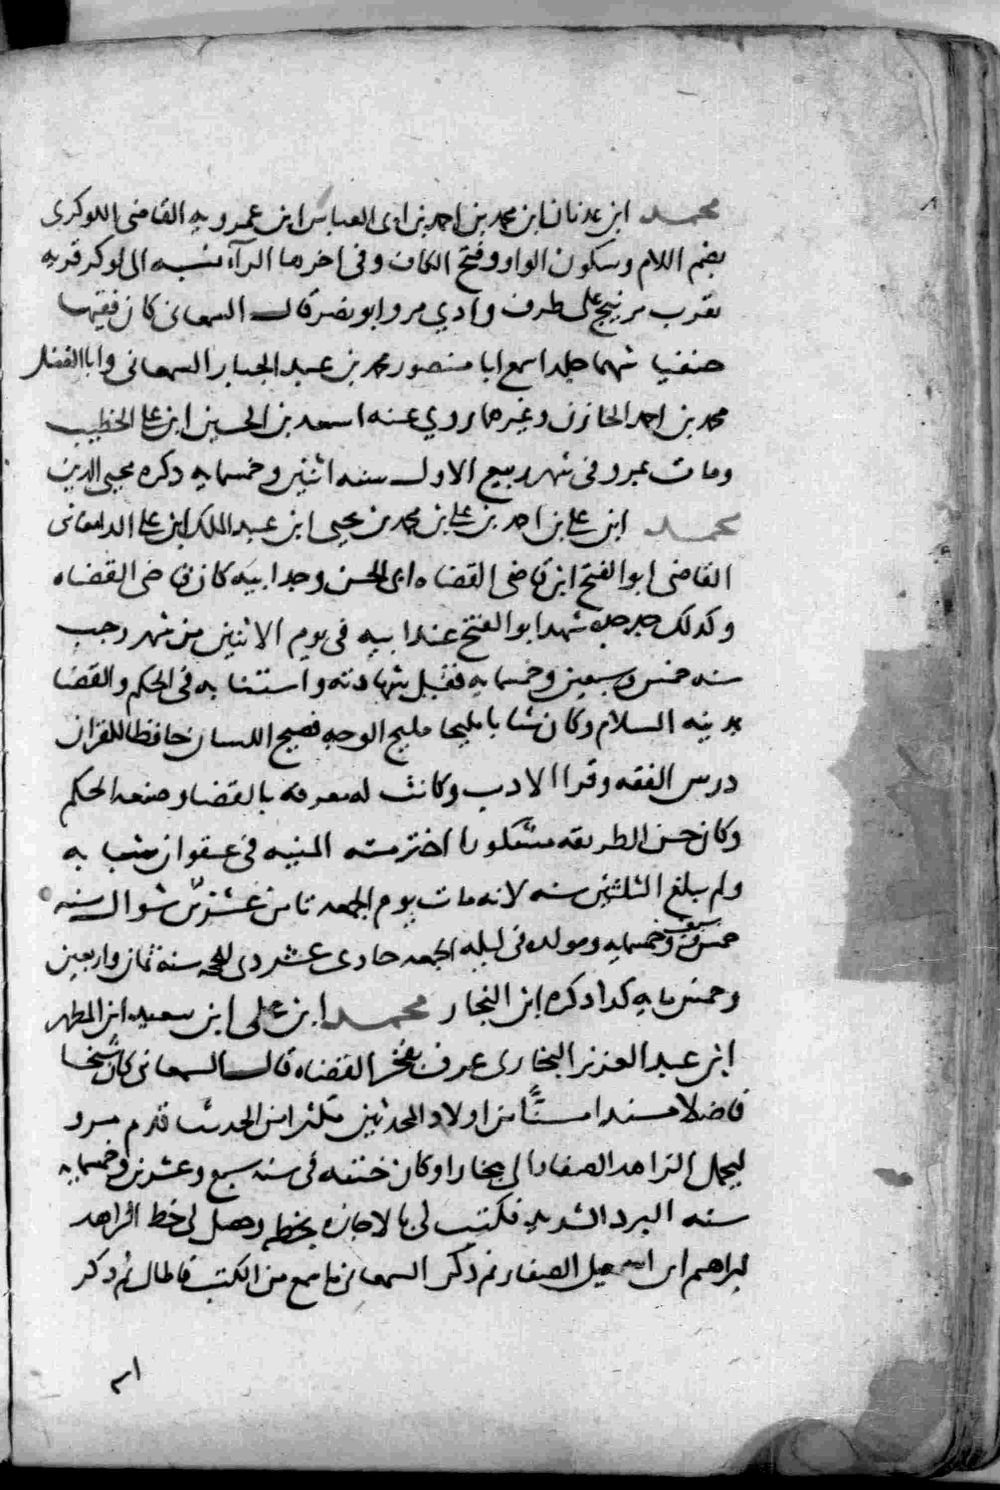 محمد ابن عدنان ابن محمد بن احمد بن ابى العباس ابن عمرويه القاضى اللوكرى
بضم اللام وسكون الواو وفتح الكاف وفى اخرها الرآء نسبه الى لوكر قريه
بقرب من بنج على طرف وادي مرو ابو نصر قال السمعانى كان فقيها
حنفيا شهما جلدا سمع ابا منصور محمد بن عبد الجبار السمعانى وابا الفضل
محمد بن احمد الخازن وغيرهما روي عنه اسعد بن الحسين ابن على الخطيب
ومات بمرو فى شهر ربيع الاول سنه اثنين وخمسمايه دكره محيى الدين
محمد ابن على بن احمد بن على بن محمد بن يحيى ابن عبد الملك ابن على الدامغانى
القاضى ابو الفتح ابن قاضى القضاه ابى الحسن وجد ابيه كان قاضى القضاه
وكدلك جد جده شهد ابو الفتح عند ابيه فى يوم الاثنين من شهر رجب
سنه خمس وسبعين وخمسمايه فقبل شهادته واستنابه فى الحكم والقضا
بمدينه السلام وكان شابا مليحا مليح الوجه فصيح اللسان حافظا للقران
درس الفقه وقرا الادب وكانت له معرفه بالقضا وصنعه الحكم
وكان حسن الطريقه مشكورا اخترمته المنيه فى عنفوان شبابه
ولم يبلغ الثلثين سنه لانه مات يوم الجمعه ثامن عشرين شوال سنه
خمس وسبعين وخمسمايه ومولده فى ليله الجمعه حادى عشر دى الحجه سنة ثمان واربعين
وخمس مايه كدا دكره ابن النجار محمد ابن على ابن سعيد ابن المطهر
ابن عبد العزيز البخارى عرف بفخر القضاه قال السمعانى كان شيخا
فاضلا مسندا مسنا من اولاد المحدثين مكثرا من الحديث قدم مرو
ليحمل الزاهد الصفار الى بخارا وكان ختنه فى سنه سبع وعشرين وخمسمايه
سنه البرد الشديد فكتب لى بالاجازه بخطه وحصل لى خط الزاهد
ابراهيم ابن اسمعيل الصفار ثم ذكر السمعانى ما سمع من الكتب فاطال ثم دكر